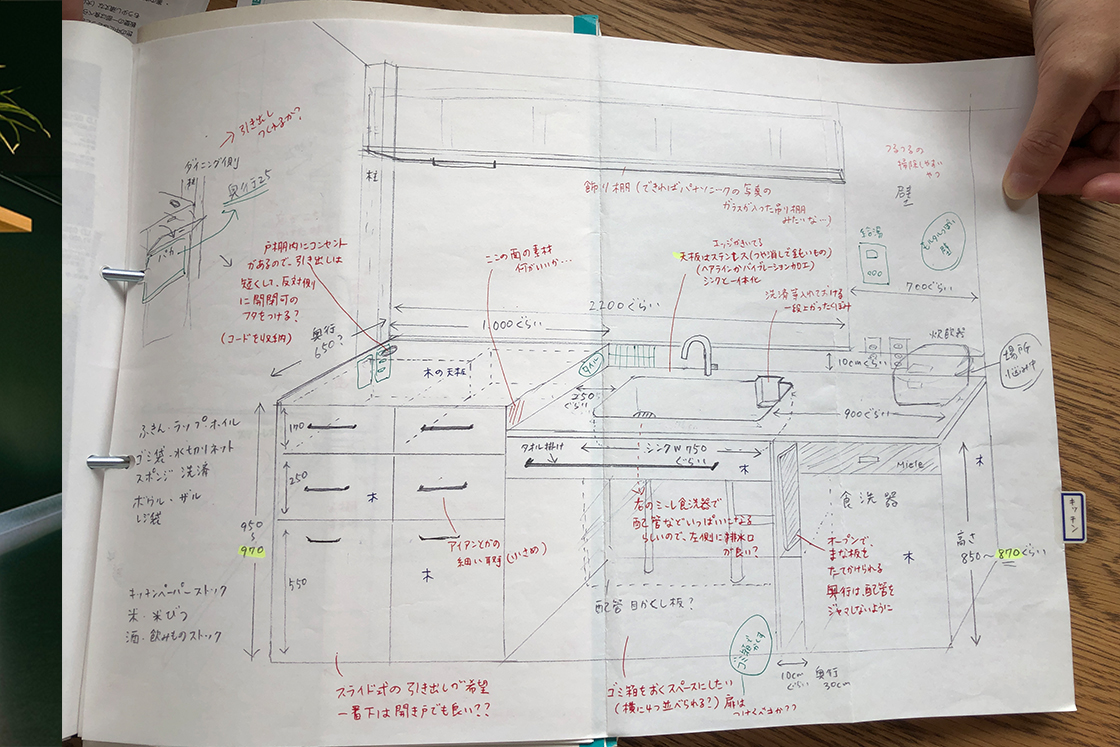 引き出し
つくれるか?
ダイニング側
柱
奥行25
バカー
戸棚内にコンセント
があるので、引き出しは
短くして、反対側
に開閉可の
フタをつける?
(コードを収納)
奥行
650?
柱
ここの面の素材
何がいいか…
飾り棚(できればパナソニックの写真の
ガラスが入った吊り棚
みたいな…)
エッジがきいてる
天板はステンレス(つや消しで鈍いもの)
(ヘアラインかバイブレーション加工)
シンクと一体化
洗済等入れておける
一段上がったくぼみ
つるつるの
掃除しやすい
やつ
壁
モルタルっぽい
壁
給湯
700ぐらい
2200ぐらい
1,000ぐらい
木の天板
タイル
250
ぐらい
10cmぐらい
炊飯器
場所
悩み中
900ぐらい
タオル掛け
シンクW750
ぐらい
木
Miele
食洗器
木
木
高さ
850〜870ぐらい
キッチン
ふきん・ラップ・ホイル
ゴミ袋・水切りネット
スポンジ・洗済
ボウル・ザル
レジ袋
キッチンペーパーストック
米・米びつ
酒・飲みものストック
950
〜
970
170
250
550
木
木
アイアンとかの
細い取手(小さめ)
右のミーレ食洗器で
配管などいっぱいになる
らしいので、左側に排水口
が良い?
オープンで、
まな板を
たてかけられる
奥行は、配管を
ジャマしないように
配管目かくし板?
ゴミ箱で
かくす
スライド式の引き出しが希望
一番下は開き戸でも良い??
ゴミ箱をおくスペースにしたい
(横に4つ並べられる?)扉は
つけるべきか??
10cm
ぐらい
奥行
30cm